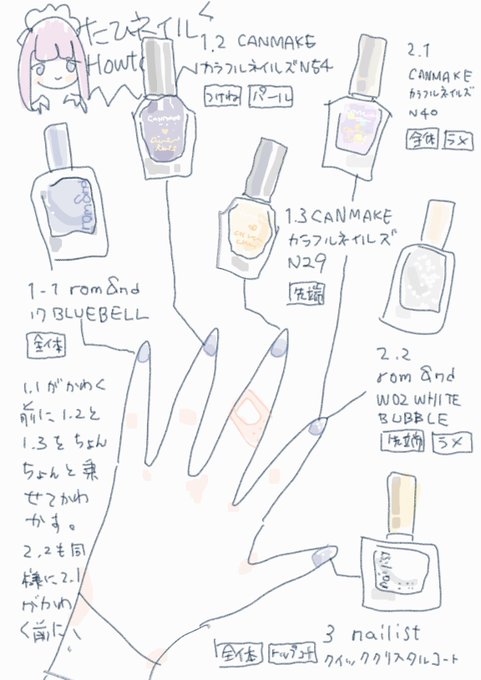 たひネイル
Howto
1.2 CANMAKE
カラフルネイルズN54
つけね パール
2.1
CANMAKE
カラフルネイルズ
N40
全体 ラメ
CANMAKE
rom&nd
1-1 rom&nd
17 BLUEBELL
全体
1.3 CANMAKE
カラフルネイルズ
N29
先端
2.2
rom&nd
W02 WHITE
BUBBLE
先端 ラメ
1.1がかわく
前に1.2と
1.3をちょん
ちょんと乗
せてかわ
かす。
2.2も同
様に2.1
がかわ
く前に、
3 nailist
全体 トップコート
クイッククリスタルコート